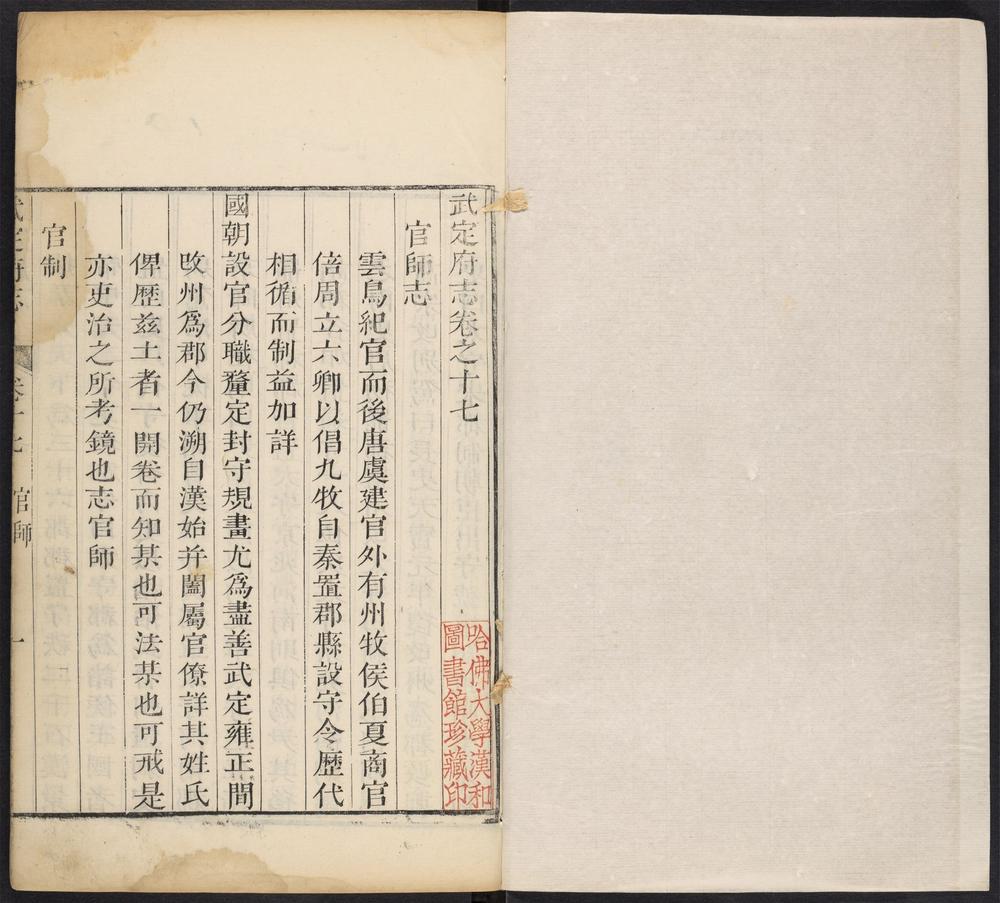 武定府志卷之十七
官師志
雲鳥紀官而後唐虞建官外有州牧侯伯夏商官
倍周立六卿以倡九牧自秦置郡縣設守令歷代
相循而制益加詳
國朝設官分職釐定封守規畫尤爲盡善武定雍正間
改州爲郡今仍溯自漢始并闔屬官僚詳其姓氏
俾歷茲土者一開卷而知某也可法某也可戒是
亦吏治之所考鏡也志官師
官制
武定府志 卷十七 官師 一
哈佛大學漢和
圖書館珍藏印